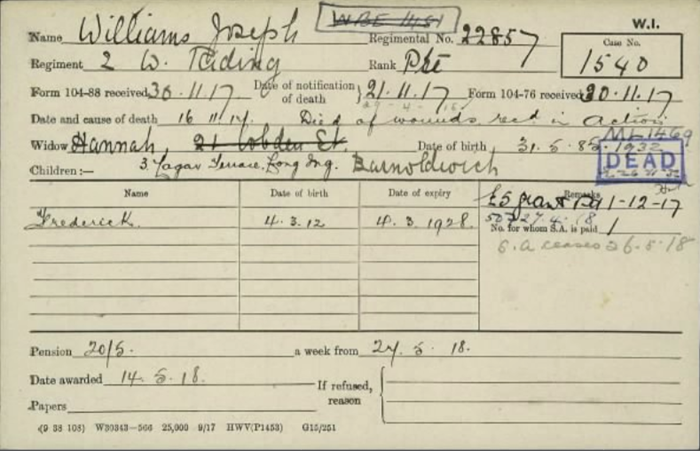 W.I.
WBE 1451
Name Williams Joseph Regimental No. 22857
Case No.
1540
Regiment 2 W. Riding Rank Pte
Form 104-88 received 30.11.17 Date of notification of death } 21.11.17 Form 104-76 received 30.11.17
Date and cause of death 16 11 17. Died of wounds recd. in action
ML1469
Widow Hannah, 21 Cobden St. Date of birth 31.5.85. 1932
DEAD
Children:— 3 Terrace, Long Ing. Barnoldswick
Name Date of birth Date of expiry Remarks
£5 grant Pd 11-12-17
Frederick. 4.3.12 4.3.1928. 27.4.18
No. for whom S.A. is paid 1
S.A ceases 26.5.18
Pension 20/5. a week from 27.5.18.
Date awarded 14.5.18. If refused, reason
Papers
(9 38 108) W30343—566 25,000 9/17 HWV(P1453) G15/251